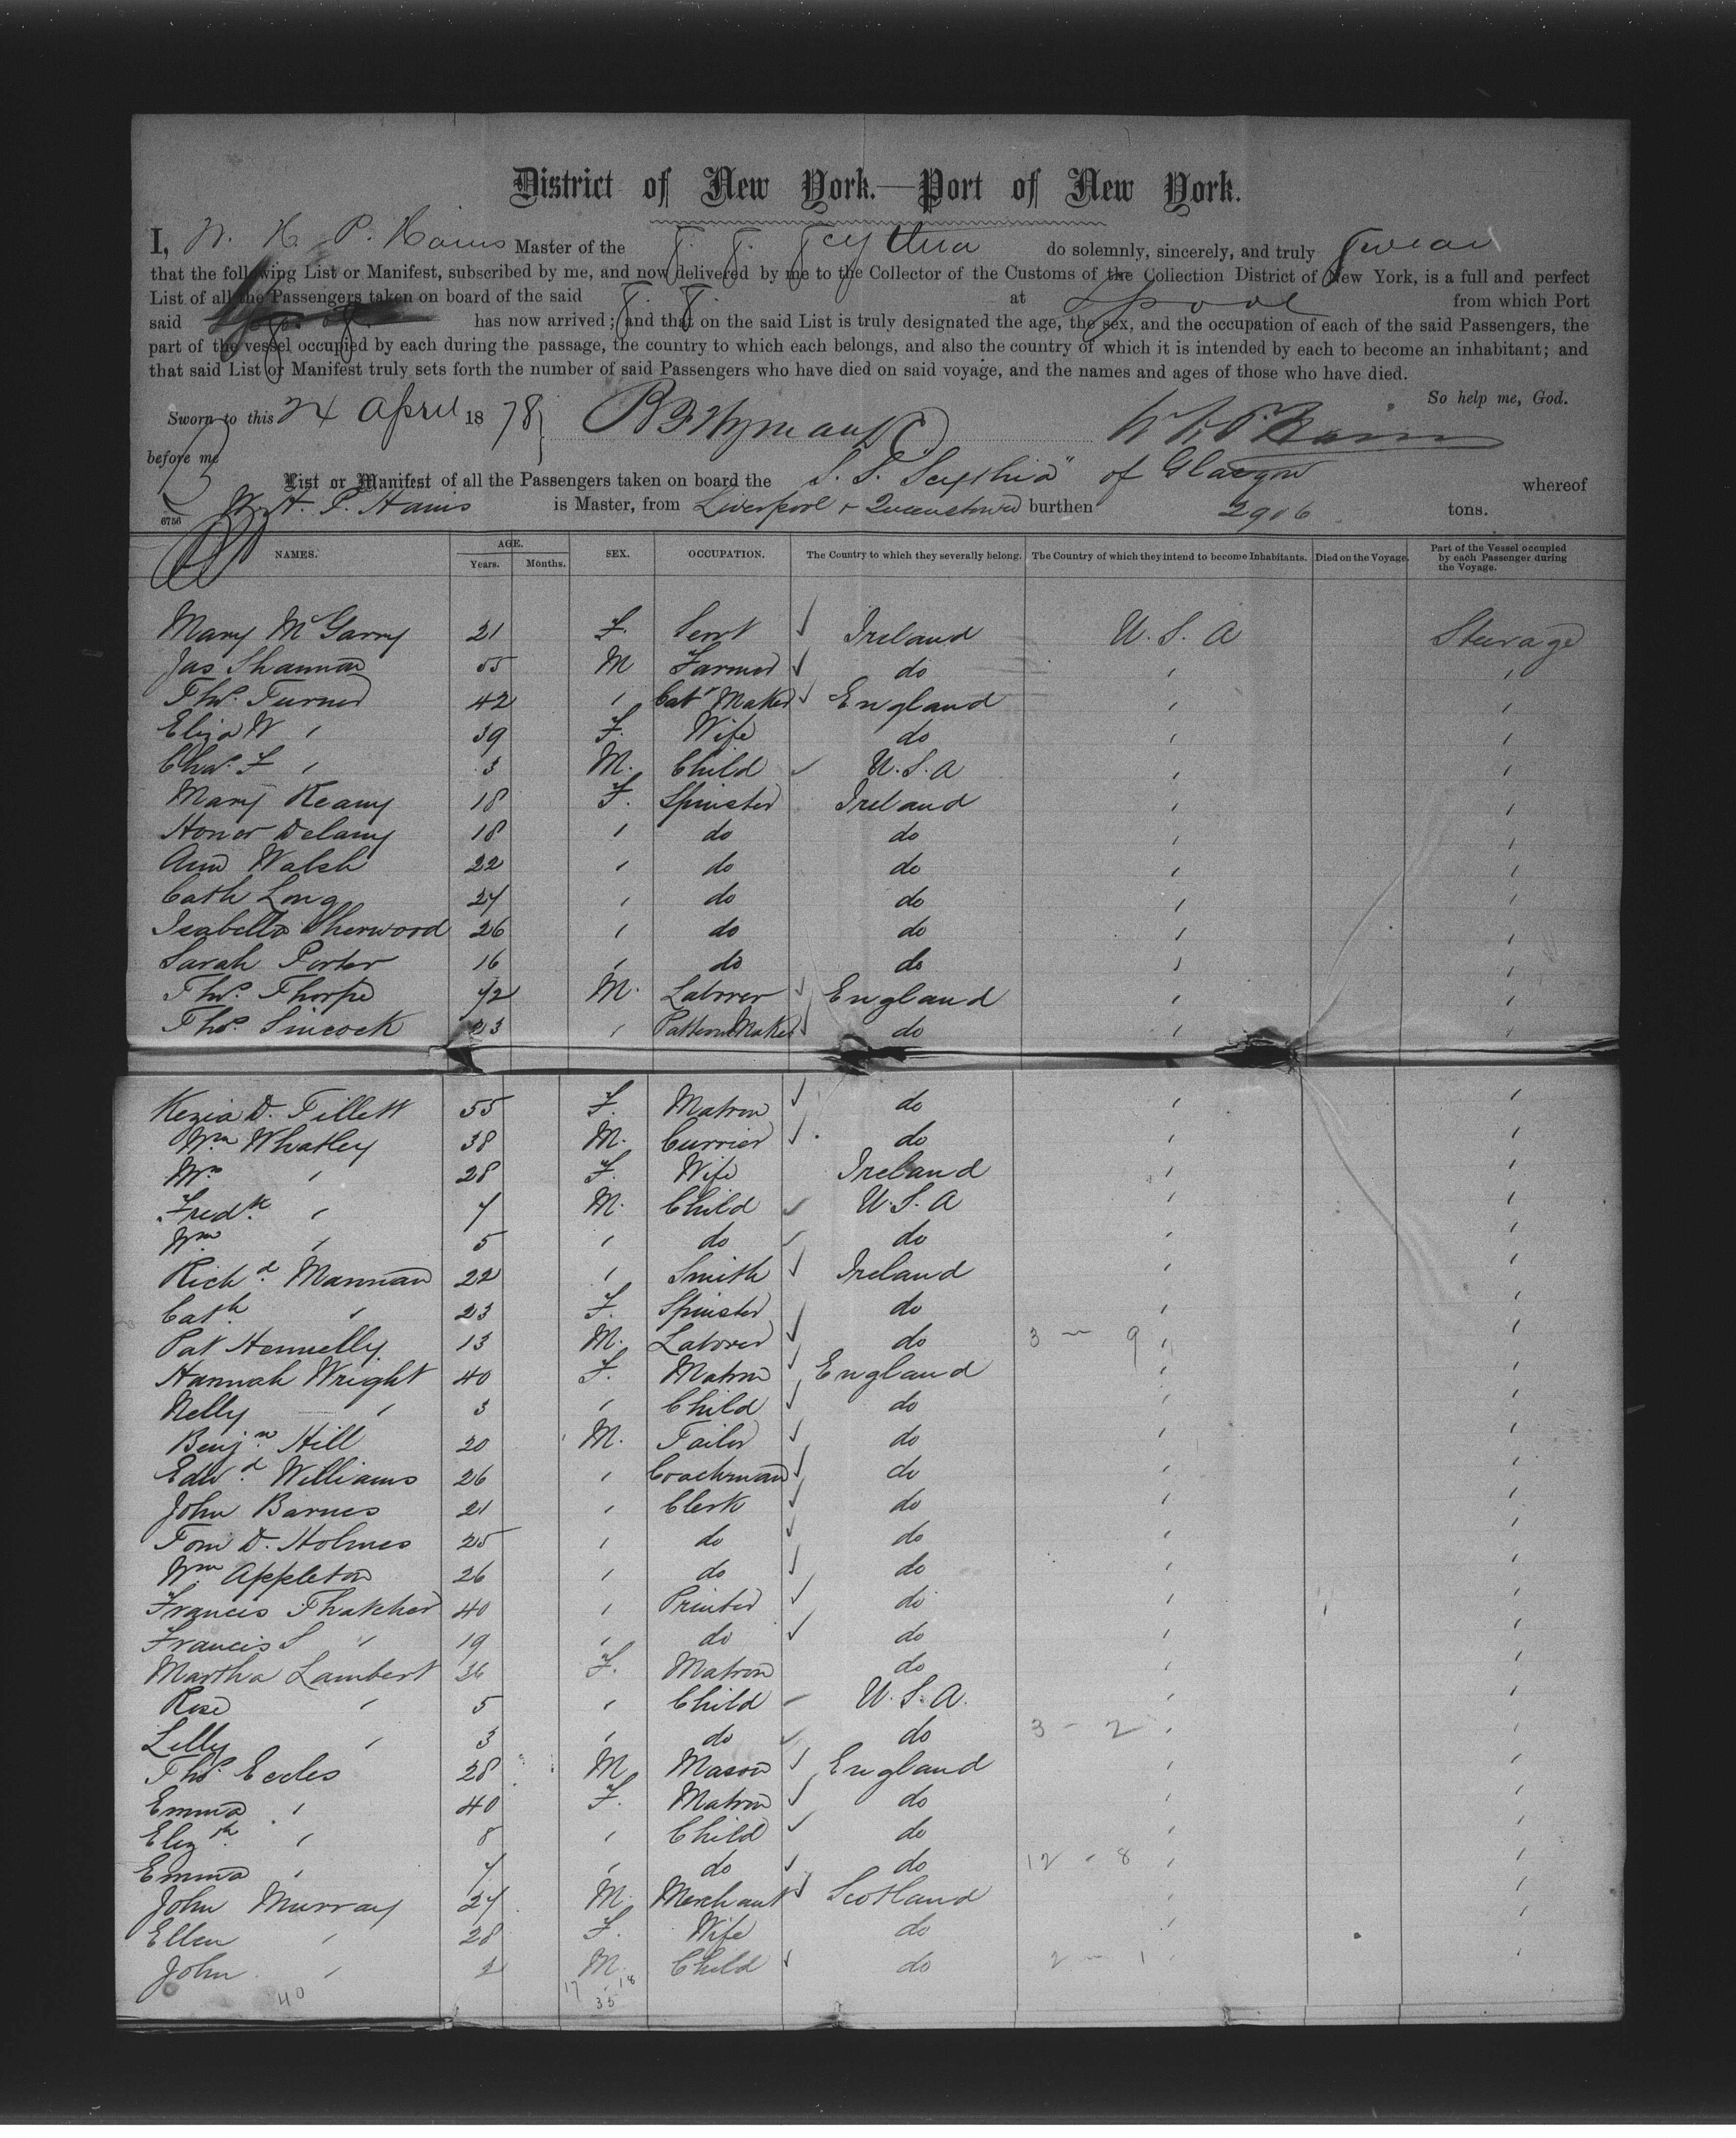 District of New York.—Port of New York.
I, W. H. P. Hains Master of the S. S. Scythia do solemnly, sincerely, and truly swear
that the following List or Manifest, subscribed by me, and now delivered by me to the Collector of the Customs of the Collection District of New York, is a full and perfect
List of all the Passengers taken on board of the said S. S. at Lpool from which Port
said has now arrived; and that on the said List is truly designated the age, the sex, and the occupation of each of the said Passengers, the
part of the vessel occupied by each during the passage, the country to which each belongs, and also the country of which it is intended by each to become an inhabitant; and
that said List or Manifest truly sets forth the number of said Passengers who have died on said voyage, and the names and ages of those who have died.
So help me, God.
Sworn to this 24 April 1878
before me
List or Manifest of all the Passengers taken on board the S. S. "Scythia" of Glasgow whereof
W. H. P. Hains is Master, from Liverpool + Queenstown burthen 2906 tons.
6756
NAMES. AGE. Years. Months. SEX. OCCUPATION. The Country to which they severally belong. The Country of which they intend to become Inhabitants. Died on the Voyage. Part of the Vessel occupied by each Passenger during the Voyage.
Mary McGarry 21 F. Servt Ireland U.S.A Sterage
Jas Shannon 55 M Farmer do " "
Thos. Turner 42 " Cabt Maker England " "
Eliza W " 39 F. Wife do " "
Chas. F " 3 M. Child U.S.A " "
Mary Keany 18 F. Spinster Ireland " "
Honor Delany 18 " do do " "
Ann Walsh 22 " do do " "
Cath Long 27 " do do " "
Isabella Sherwood 26 " do do " "
Sarah Porter 16 " do do " "
Thos. Thorpe 42 M. Laborer England " "
Thos. Sincock 23 " Pattern Maker do " "
Kezia D. Tillett 55 F. Matron do " "
Wm Whatley 38 M. Currier do " "
Mrs " 28 F. Wife Ireland " "
Fredk. " 7 M. Child U.S.A " "
Wm " 5 " do do " "
Richd. Mannan 22 " Smith Ireland " "
Cath " 23 F. Spinster do " "
Pat Hennelly 13 M. Laborer do 3 — 9 " "
Hannah Wright 40 F. Matron England " "
Nelly " 3 " Child do " "
Benjn. Hill 20 M. Tailor do " "
Edwd. Williams 26 " Coachman do " "
John Barnes 21 " Clerk do " "
Tom D. Holmes 25 " do do " "
Wm Appleton 26 " do do " "
Francis Thatcher 40 " Printer do " "
Francis S " 19 " do do " "
Martha Lambert 36 F. Matron do " "
Rose " 5 " Child U.S.A. " "
Lilly " 3 " do do 3 - 2 " "
Thos. Eccles 28 M Mason England " "
Emma " 40 F. Matron do " "
Elizth. " 8 " Child do " "
Emma " 7 " do do 12 - 8 " "
John Murray 27 M. Merchant Scotland " "
Ellen " 28 F. Wife do " "
John " 2 M. Child do 2 — 1 " "
40 17 18
35